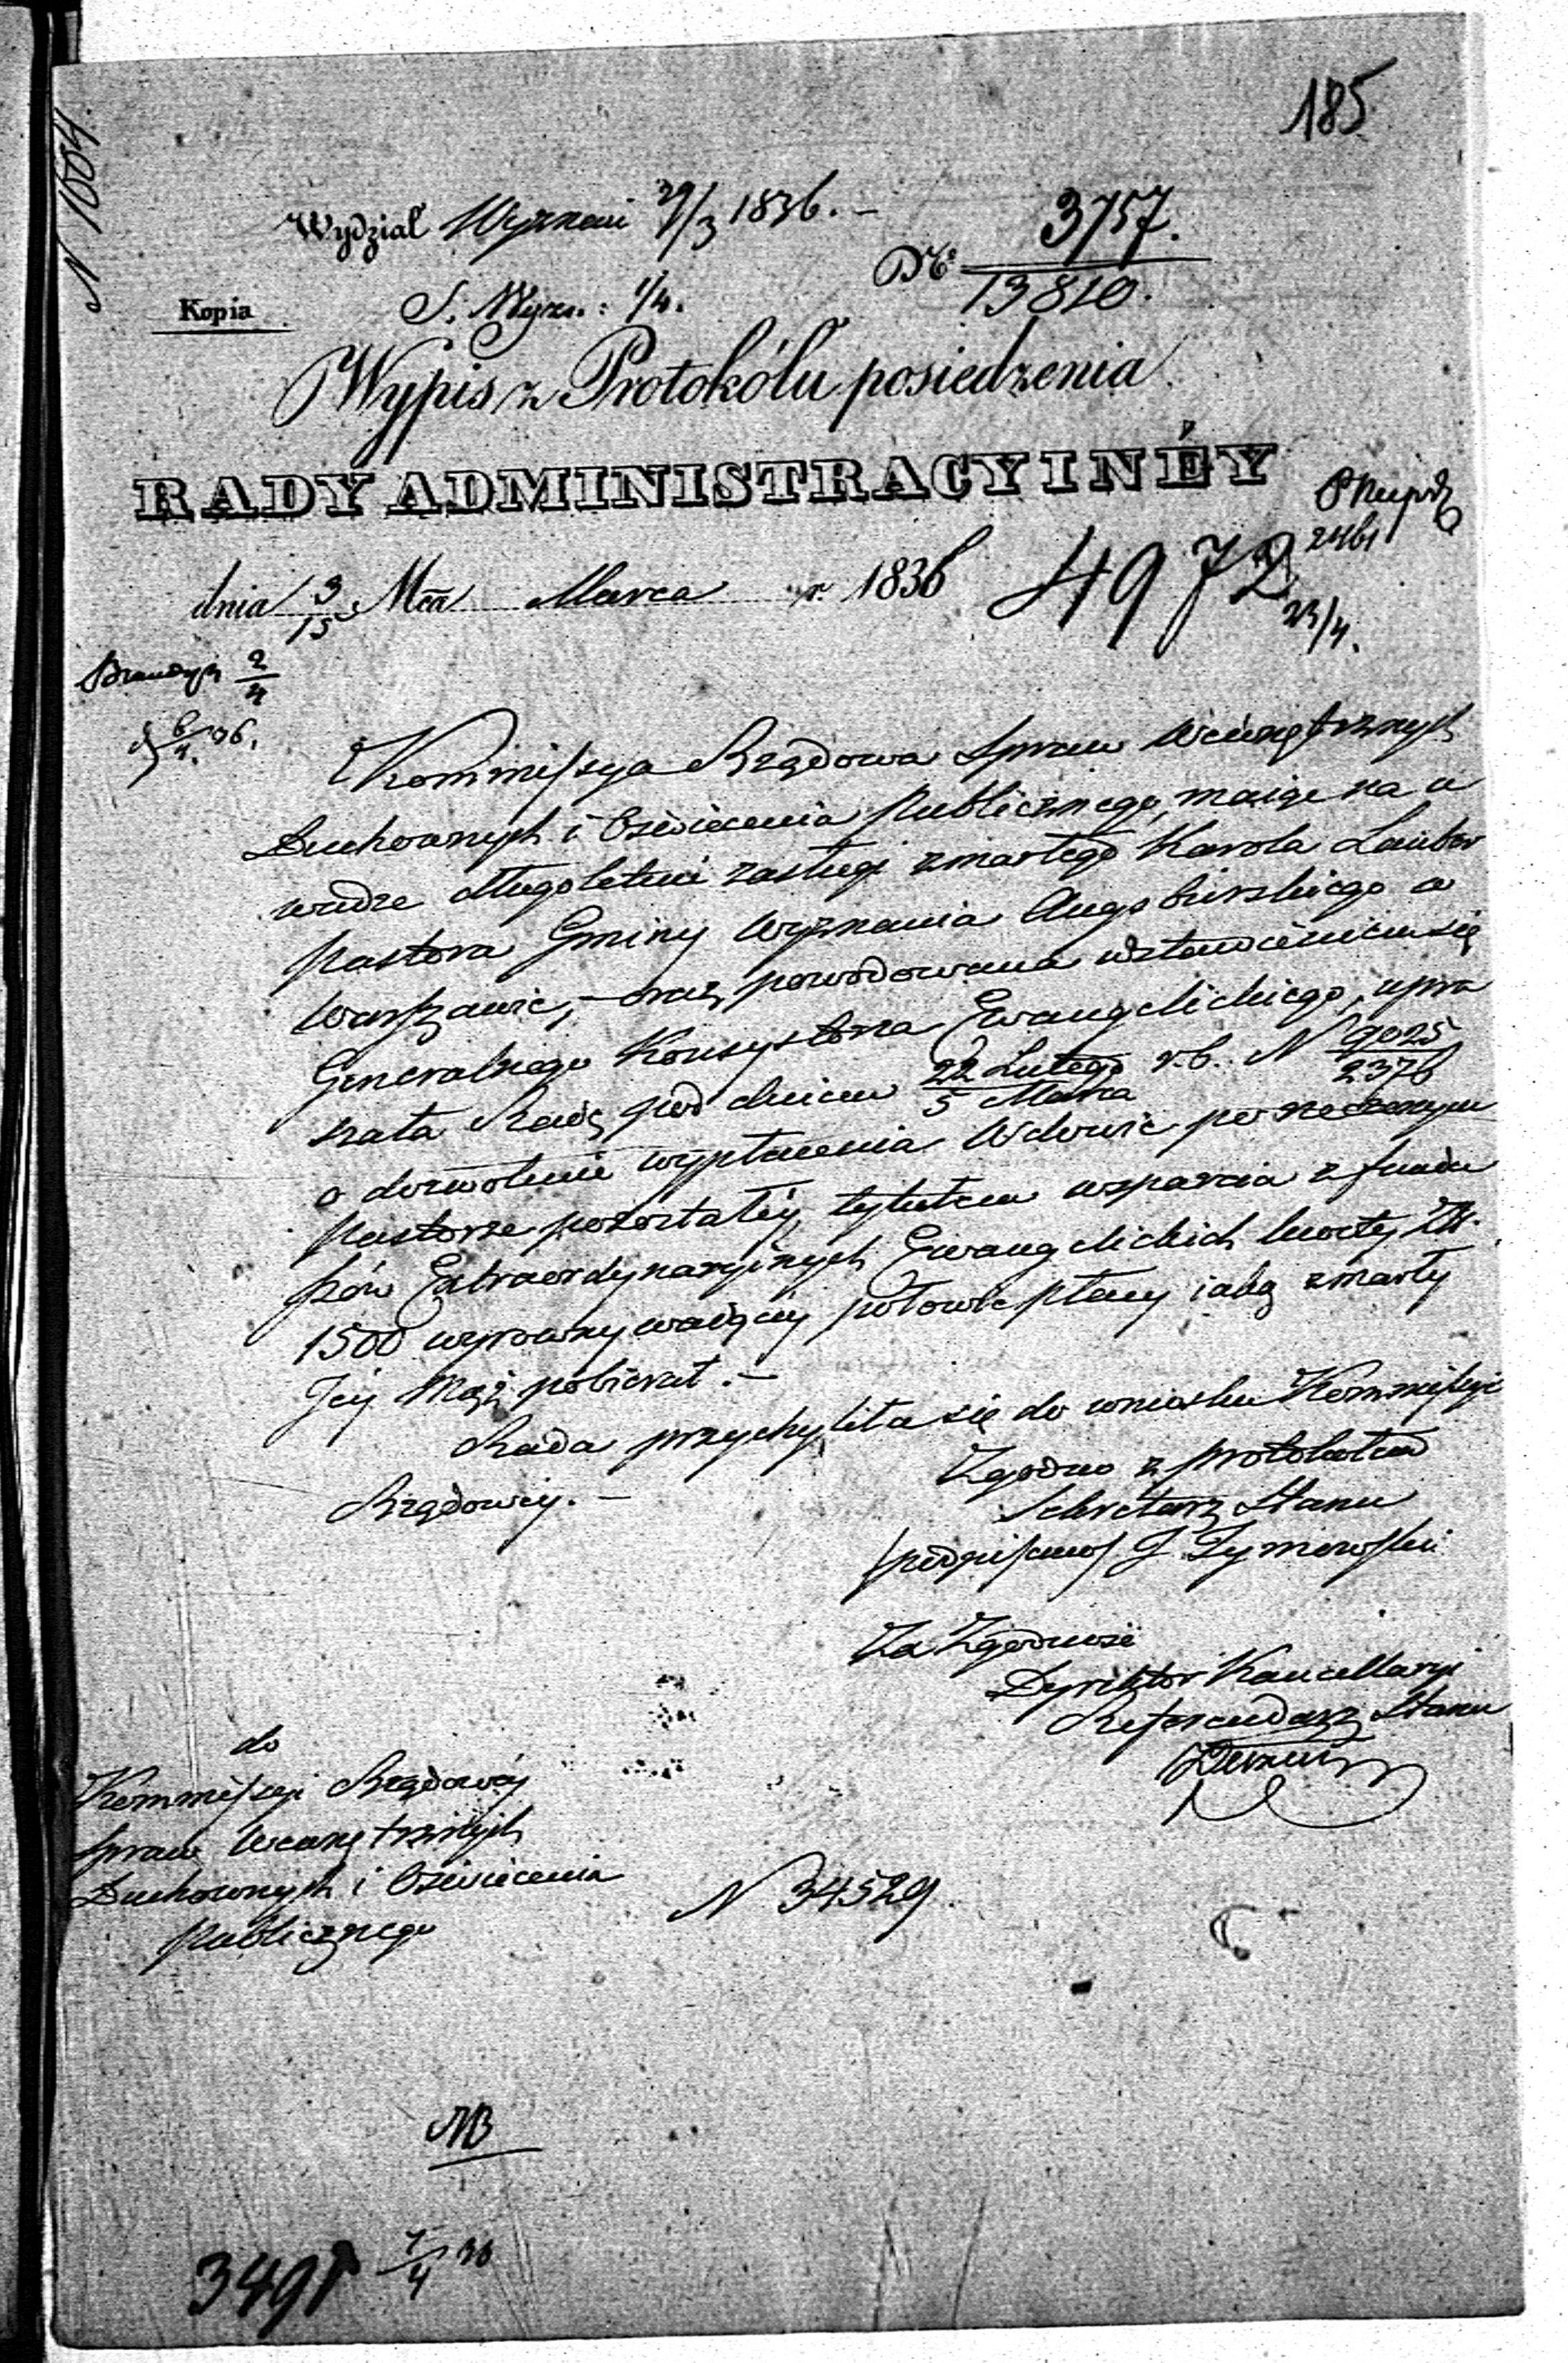 185
N 1004.
Wydział Wyznań 29/3 1836. –
3757.
No 13810.
Kopia
S. Wyzn.: 1/4.
Wypis z Protokółu posiedzenia
RADY ADMINISTRACYINÉY
2461
dnia 3/15 Mca Marca r. 1836
4972
23/4.
2/4
6/4 36.
Kommissya Rządowa Spraw Wewnętrznych
Duchownych i Oświecenia Publicznego, maiąc na u
wadze długoletnie zasługi zmarłego Karola Lauber
Pastora Gminy Wyznania Augsburskiego w
Warszawie, – oraz powodowana wstawieniem się
Generalnego Konsystorza Ewangelickiego, upra
szała Radę pod dniem 22 Lutego / 5 Marca r. b. N 9025/2376
o dozwolenie wypłacenia Wdowie po rzeczonym
Pastorze pozostałéy, tytułem wsparcia z fundu
szów Extraordynaryinych Ewangelickich kwoty Zł.
1500 wyrownywaiącéy połowie płacy iaką zmarły
Jéy Mąż pobierał. –
Rada przychyliła się do wniosku Kommissyi
Rządowéy. –
Zgodno z protokołem
Sekretarz Stanu
/podpisano/ J. Tymowski
Za Zgodność
Dyrektor Kancellaryi
Referendarz Stanu
do
Kommissyi Rządowéy
Spraw Wewnętrznych
Duchownych i Oświecenia
Publicznego
N 34529
NB
7/4 36